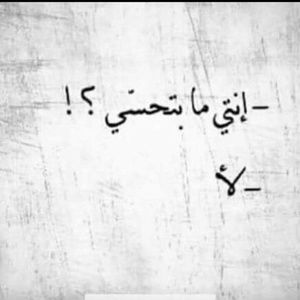 -إنتي ما بتحسّي ؟ !
-لأ